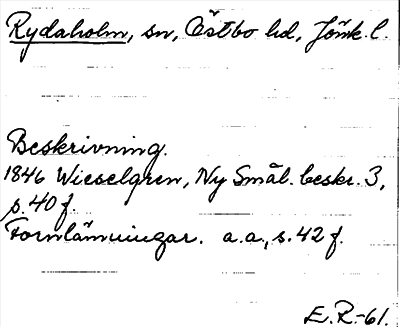 Rydaholm, sn, Östbo hd, Jönk. l.
Beskrivning.
1846 Wieselgren, Ny Smål. beskr. 3,
s. 40 f.
Fornlämningar. a.a., s. 42 f.
E.R.-61.